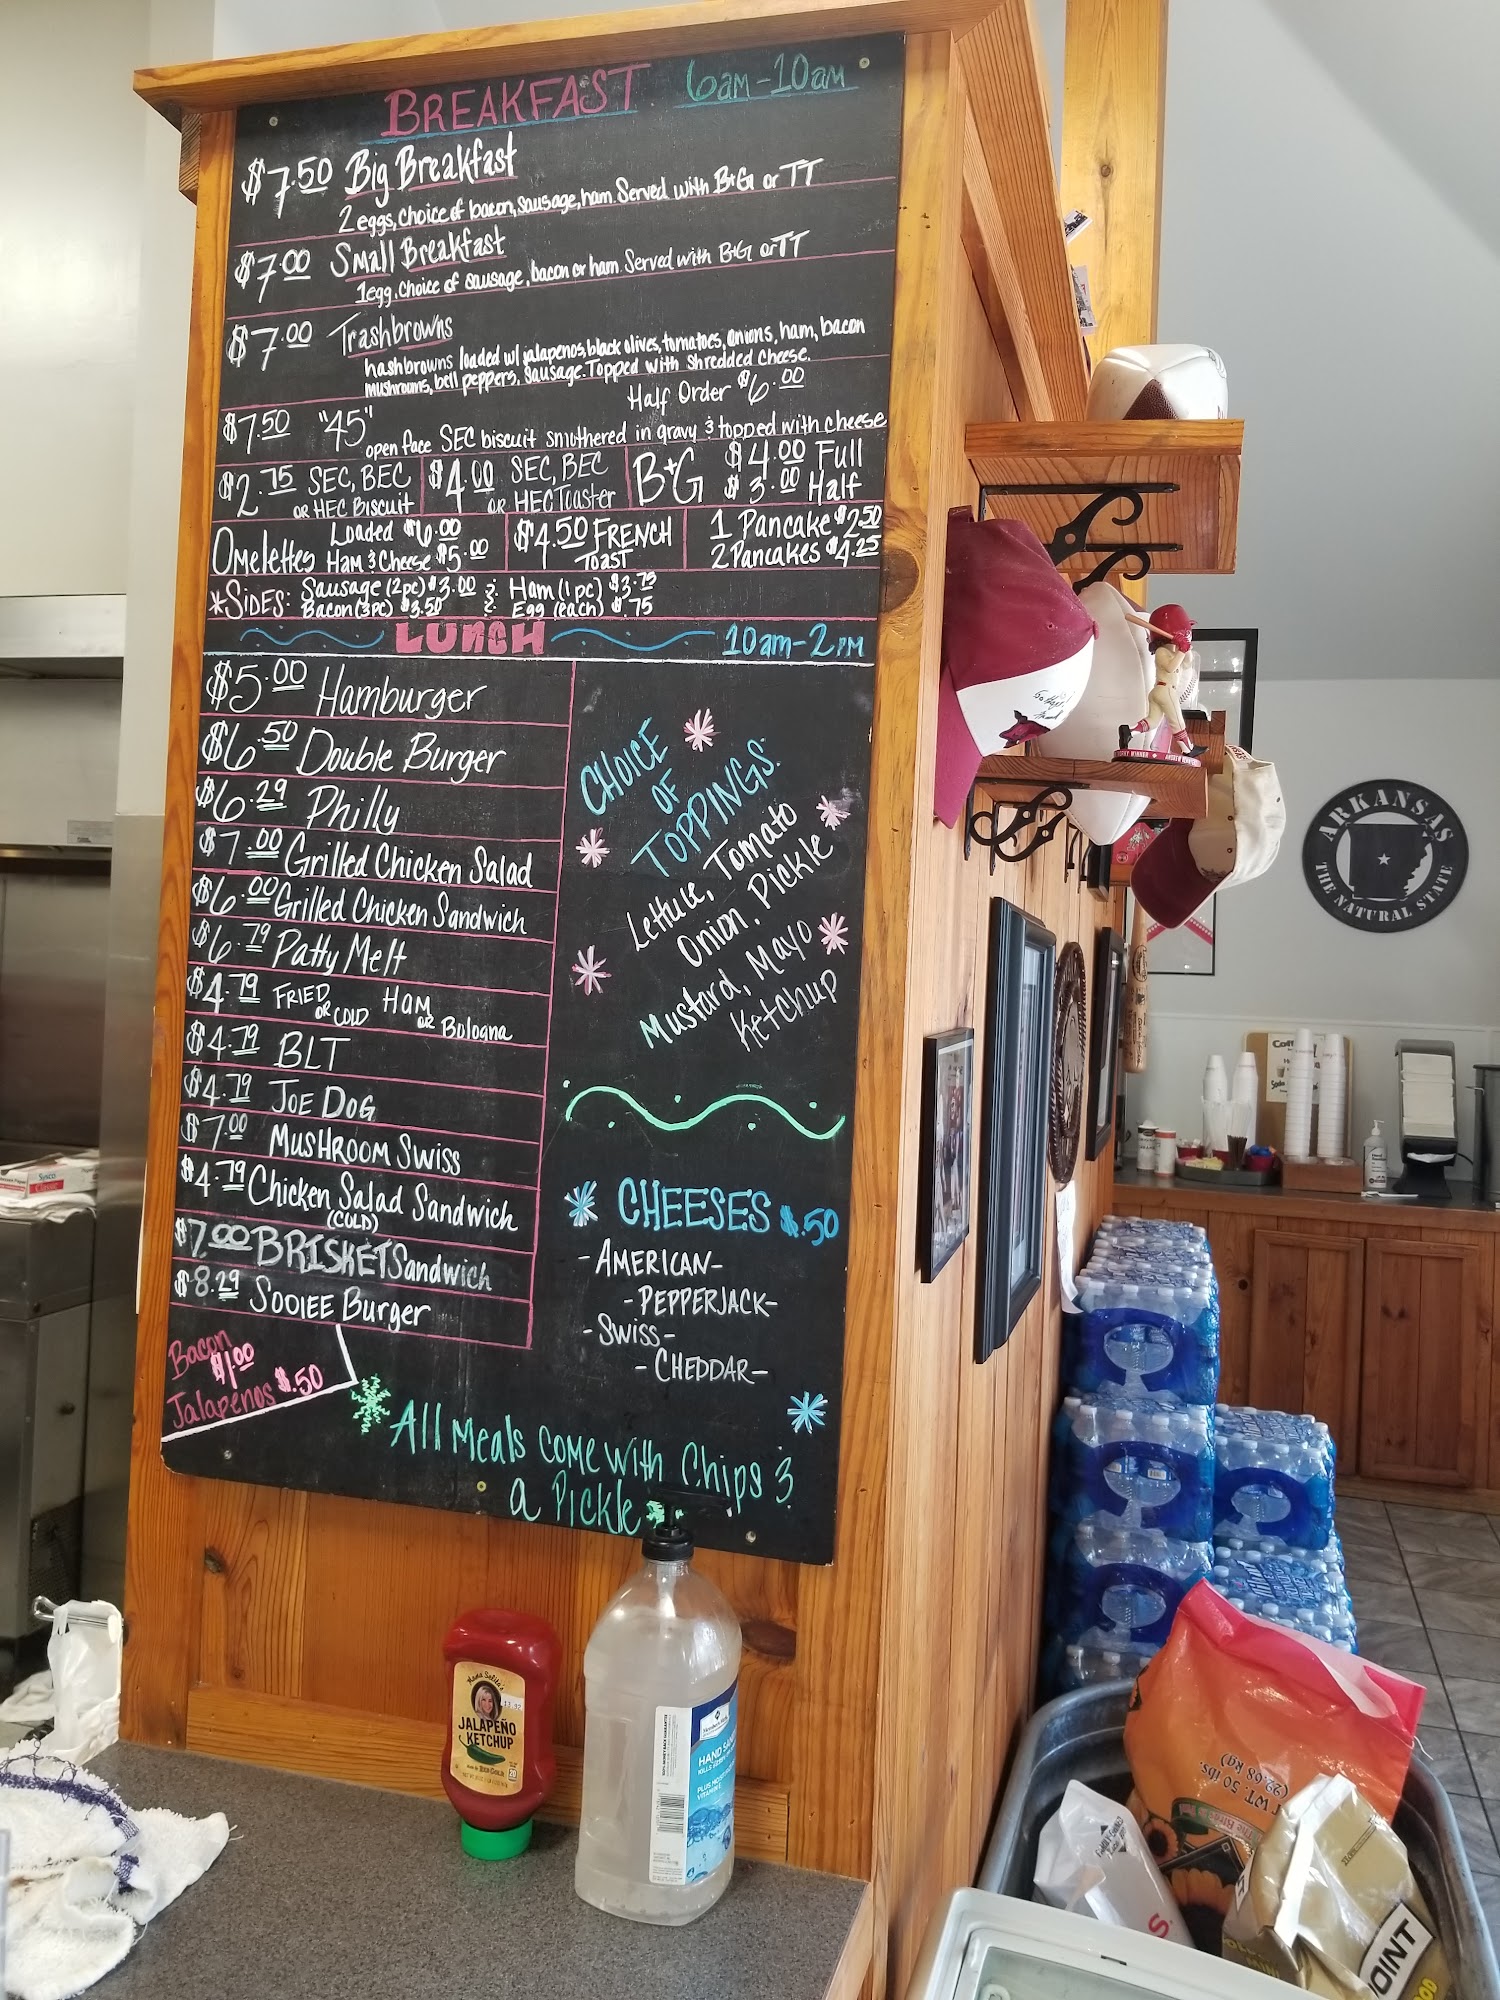 BREAKFAST 6am-10am
$7.50 Big Breakfast
2 eggs, choice of bacon, sausage, ham. Served with B+G or TT
$7.00 Small Breakfast
1 egg, choice of sausage, bacon or ham. Served with B+G or TT
$7.00 Trashbrowns
hashbrowns loaded w/ jalapenos, black olives, tomatoes, onions, ham, bacon
mushrooms, bell peppers, sausage. Topped with shredded cheese.
Half Order $6.00
$7.50 "45"
open face SEC biscuit smothered in gravy & topped with cheese
$2.75 SEC, BEC
or HEC Biscuit
$4.00 SEC, BEC
or HEC Toaster
B+G $4.00 Full
$3.00 Half
Omelettes Loaded $6.00
Ham & Cheese $5.00
$4.50 FRENCH
TOAST
1 Pancake $2.50
2 Pancakes $4.25
*SIDES: Sausage (2pc) $3.00 & Ham (1pc) $3.75
Bacon (3pc) $3.50 & Egg (each) $.75
LUNCH 10am-2PM
$5.00 Hamburger
$6.50 Double Burger
$6.29 Philly
$7.00 Grilled Chicken Salad
$6.00 Grilled Chicken Sandwich
$6.79 Patty Melt
$4.79 FRIED or COLD HAM or Bologna
$4.79 BLT
$4.79 JOE DOG
$7.00 MUSHROOM SWISS
$4.79 Chicken Salad Sandwich
(COLD)
$7.00 BRISKET Sandwich
$8.29 SOOIEE Burger
Bacon
$1.00
Jalapenos $.50
CHOICE
OF
TOPPINGS:
Lettuce, Tomato
Onion, Pickle
Mustard, Mayo
Ketchup
CHEESES $.50
-AMERICAN-
-PEPPERJACK-
-SWISS-
-CHEDDAR-
All Meals come with Chips &
a Pickle
ARKANSAS
THE NATURAL STATE
Sysco
Classic
JALAPEÑO
KETCHUP
HAND SAN
PLUS MOIST
VITAMIN E
WT. 50 lbs.
(22.68 kg)
OINT